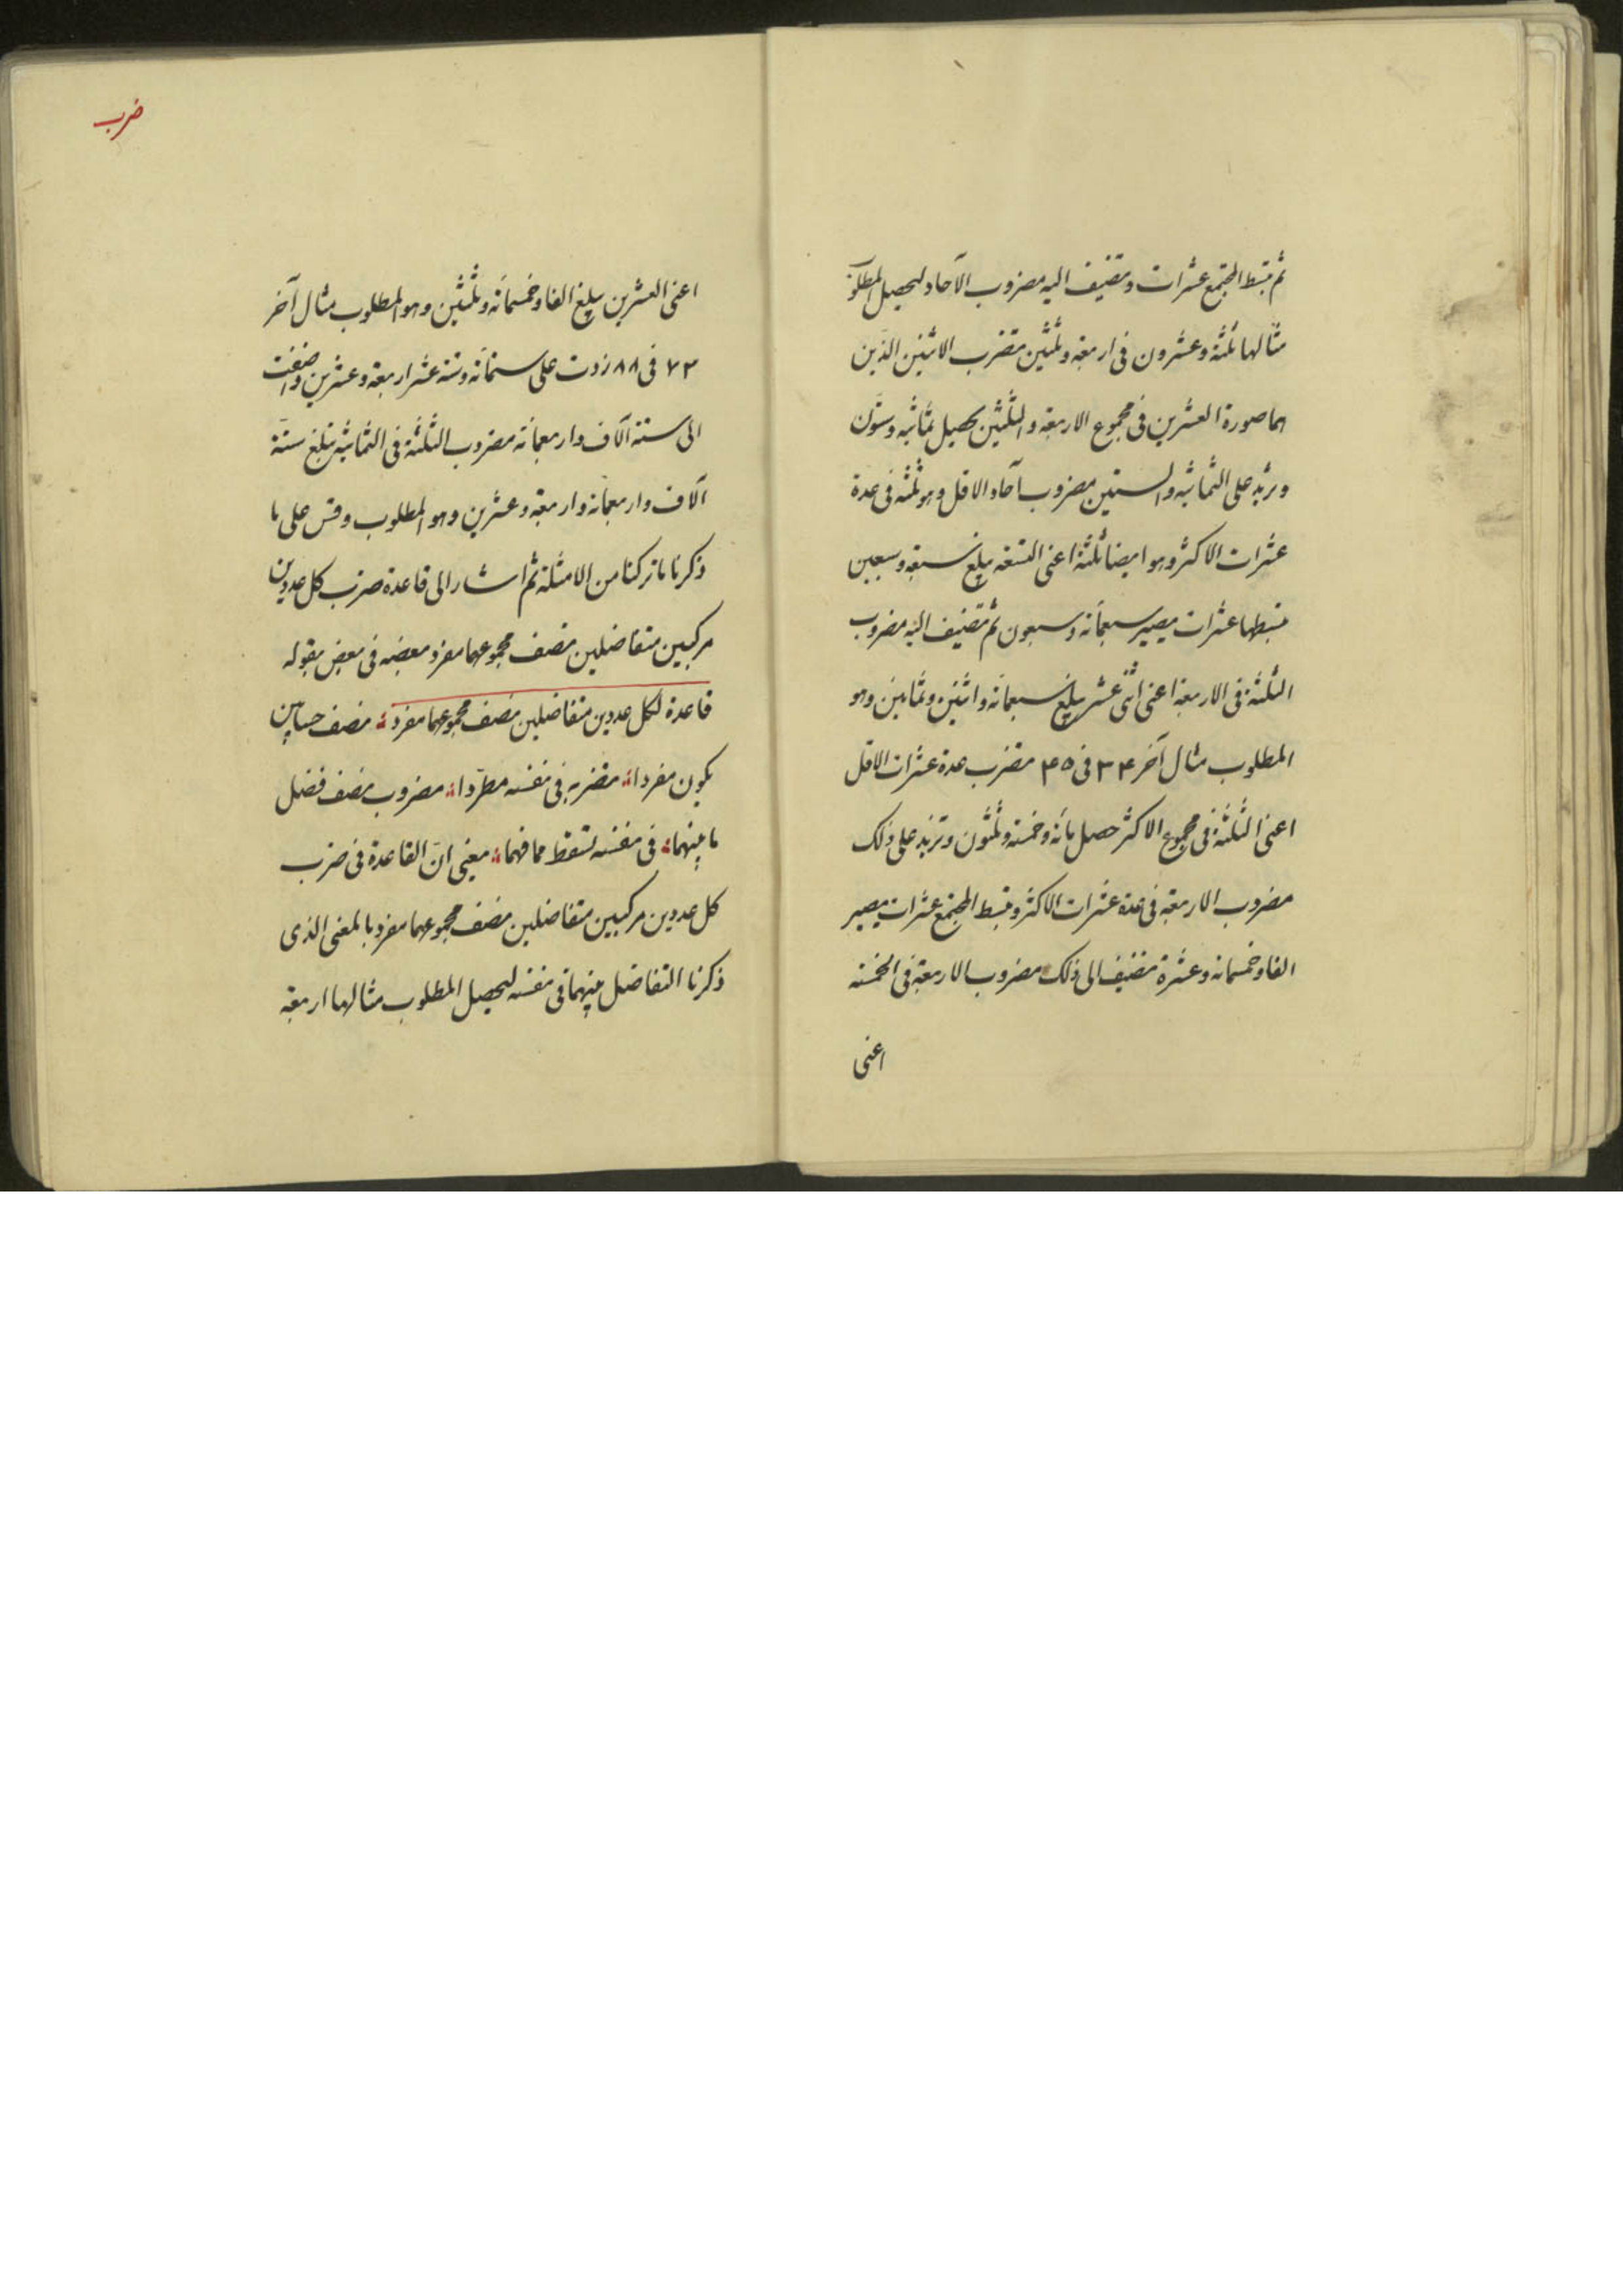 ثم تبسط المجتمع عشرات وتضيف اليه مضروب الآحاد ليحصل المطلوب
مثالها ثلثة وعشرون فى اربعة وثلثين تضرب الاثنين الذين
هما صورة العشرين فى مجموع الاربعة والثلثين يحصل ثمانية وستون
وتزيد على الثمانية والستين مضروب آحاد الاقل وهو ثلثة فى عدة
عشرات الاكثر وهو ايضا ثلثة اعنى التسعة يبلغ سبعة وسبعين
تبسطها عشرات يصير سبعمائة وسبعون ثم تضيف اليه مضروب
الثلثة فى الاربعة اعنى اثنى عشر يبلغ سبعمائة واثنين وثمانين وهو
المطلوب مثال آخر ٣٤ فى ٤٥ تضرب عدة عشرات الاقل
اعنى الثلثة فى مجموع الاكثر حصل مائة وخمسة وثلثون وتزيد على ذلك
مضروب الاربعة فى عدة عشرات الاكثر وتبسط المجتمع عشرات يصير
الفا وخمسمائة وعشرة تضيف الى ذلك مضروب الاربعة فى الخمسة
اعنى
ضرب
اعنى العشرين يبلغ الفا وخمسمائة وثلثين وهو المطلوب مثال آخر
٧٣ فى ٨٨ زدت على ستمائة وستة عشر اربعة وعشرين واضفت
الى ستة آلاف واربعمائة مضروب الثلثة فى الثمانية تبلغ ستة
آلاف واربعمائة واربعة وعشرين وهو المطلوب وقس على ما
ذكرنا ما تركنا من الامثلة ثم اشار الى قاعدة ضرب كل عددين
مركبين متفاضلين نصف مجموعهما مفرد بعضه فى بعض بقوله
قاعدة لكل عددين متفاضلين نصف مجموعهما مفرد نصف حسابين
يكون مفردا تضربه فى نفسه مطردا مضروب نصف فضل
ما بينهما فى نفسه تسقط مما فهما يعنى انّ القاعدة فى ضرب
كل عددين مركبين متفاضلين نصف مجموعهما مفرد بالمعنى الذى
ذكرنا التفاضل بينهما فى نفسه ليحصل المطلوب مثالها اربعة